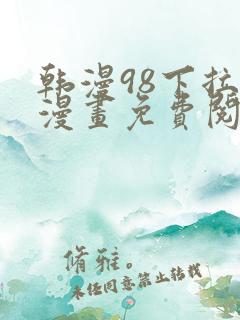 韩漫98下拉
漫畫免費閱
脩雅。
未经同意禁止转载